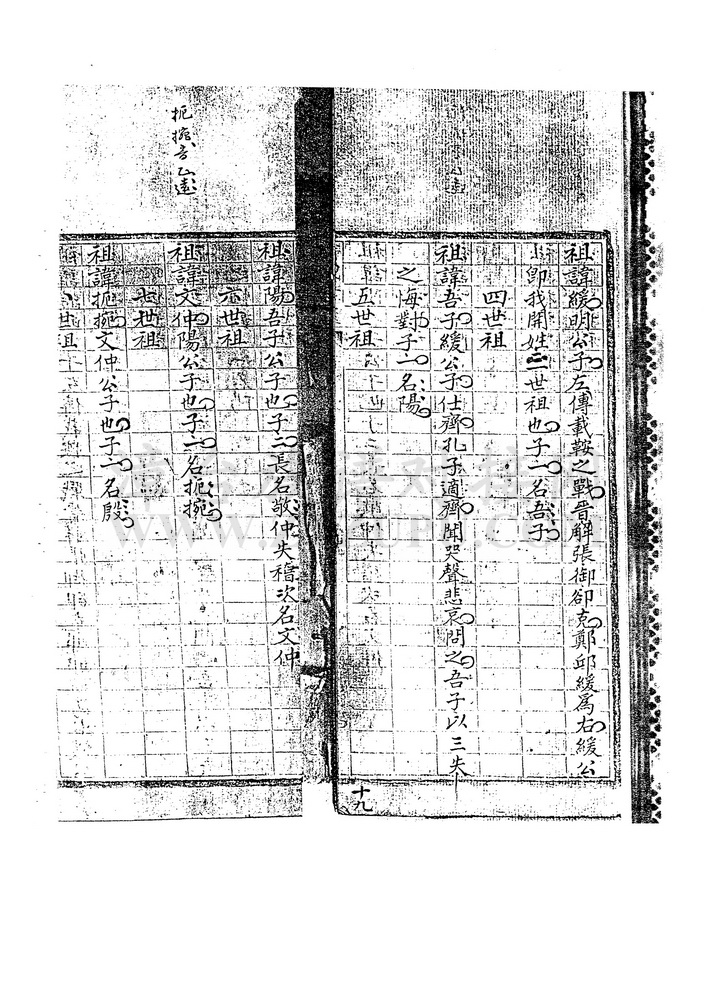 祖諱緩明公子左傳載鞍之戰晉解張御卻克鄭邱緩爲右緩公
卽我開姓二世祖也子一名吾子
四世祖
祖諱吾子緩公子仕齊孔子適齊聞哭聲悲哀問之吾子以三失
之悔對子一名陽
五世祖
十九
祖諱陽吾子公子也子二長名敬仲失稽次名文仲
六世祖
祖諱文仲陽公子也子一名扼捥
七世祖
祖諱扼捥文仲公子也子一名殷
世祖